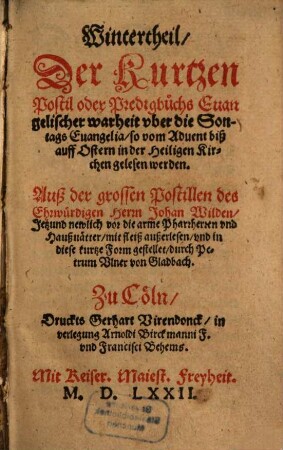 Wintertheil/
Der Kurtzen
Postil oder Predigbüchs Euan
gelischer warheit vber die Son-
tags Euangelia/so vom Aduent biß
auff Ostern in der Heiligen Kir-
chen gelesen werden.
Auß der grossen Postillen des
Ehrwürdigen Herrn Johan Wilden/
Jetzund newlich vor die arme Pharrherren vnd
Haußuätter/mit fleiß außerlesen/vnd in
diese kurtze Form gestellet/durch Pe-
trum Vlner von Gladbach.
Zu Cöln/
Druckts Gerhart Virendonck/in
verlegung Arnoldi Birckmanni F.
vnd Francisci Behems.
Mit Keiser. Maiest. Freyheit.
M. D. LXXII.